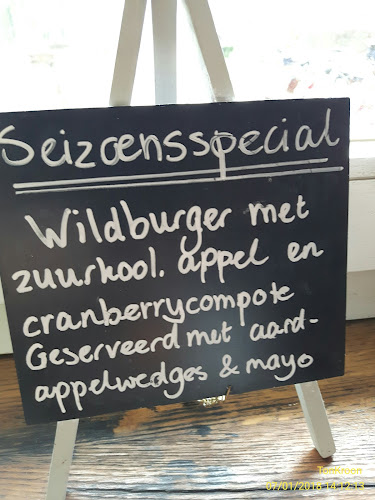 Seizoensspecial
Wildburger met
zuurkool. appel en
cranberrycompote
Geserveerd met aard-
appelwedges & mayo
07/01/2018 14:12:13